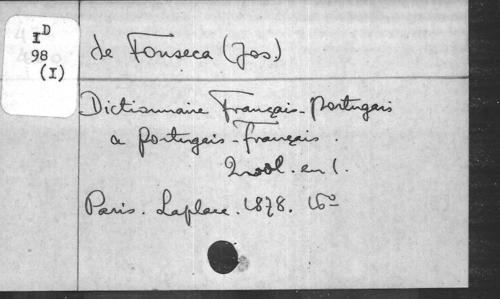 I D
98
(I)
de Fonseca (Jos.)
Dictionnaire Français-Portugais
a Portugais-Français.
2 vol. en 1.
Paris. Laplace. 1878. 16º